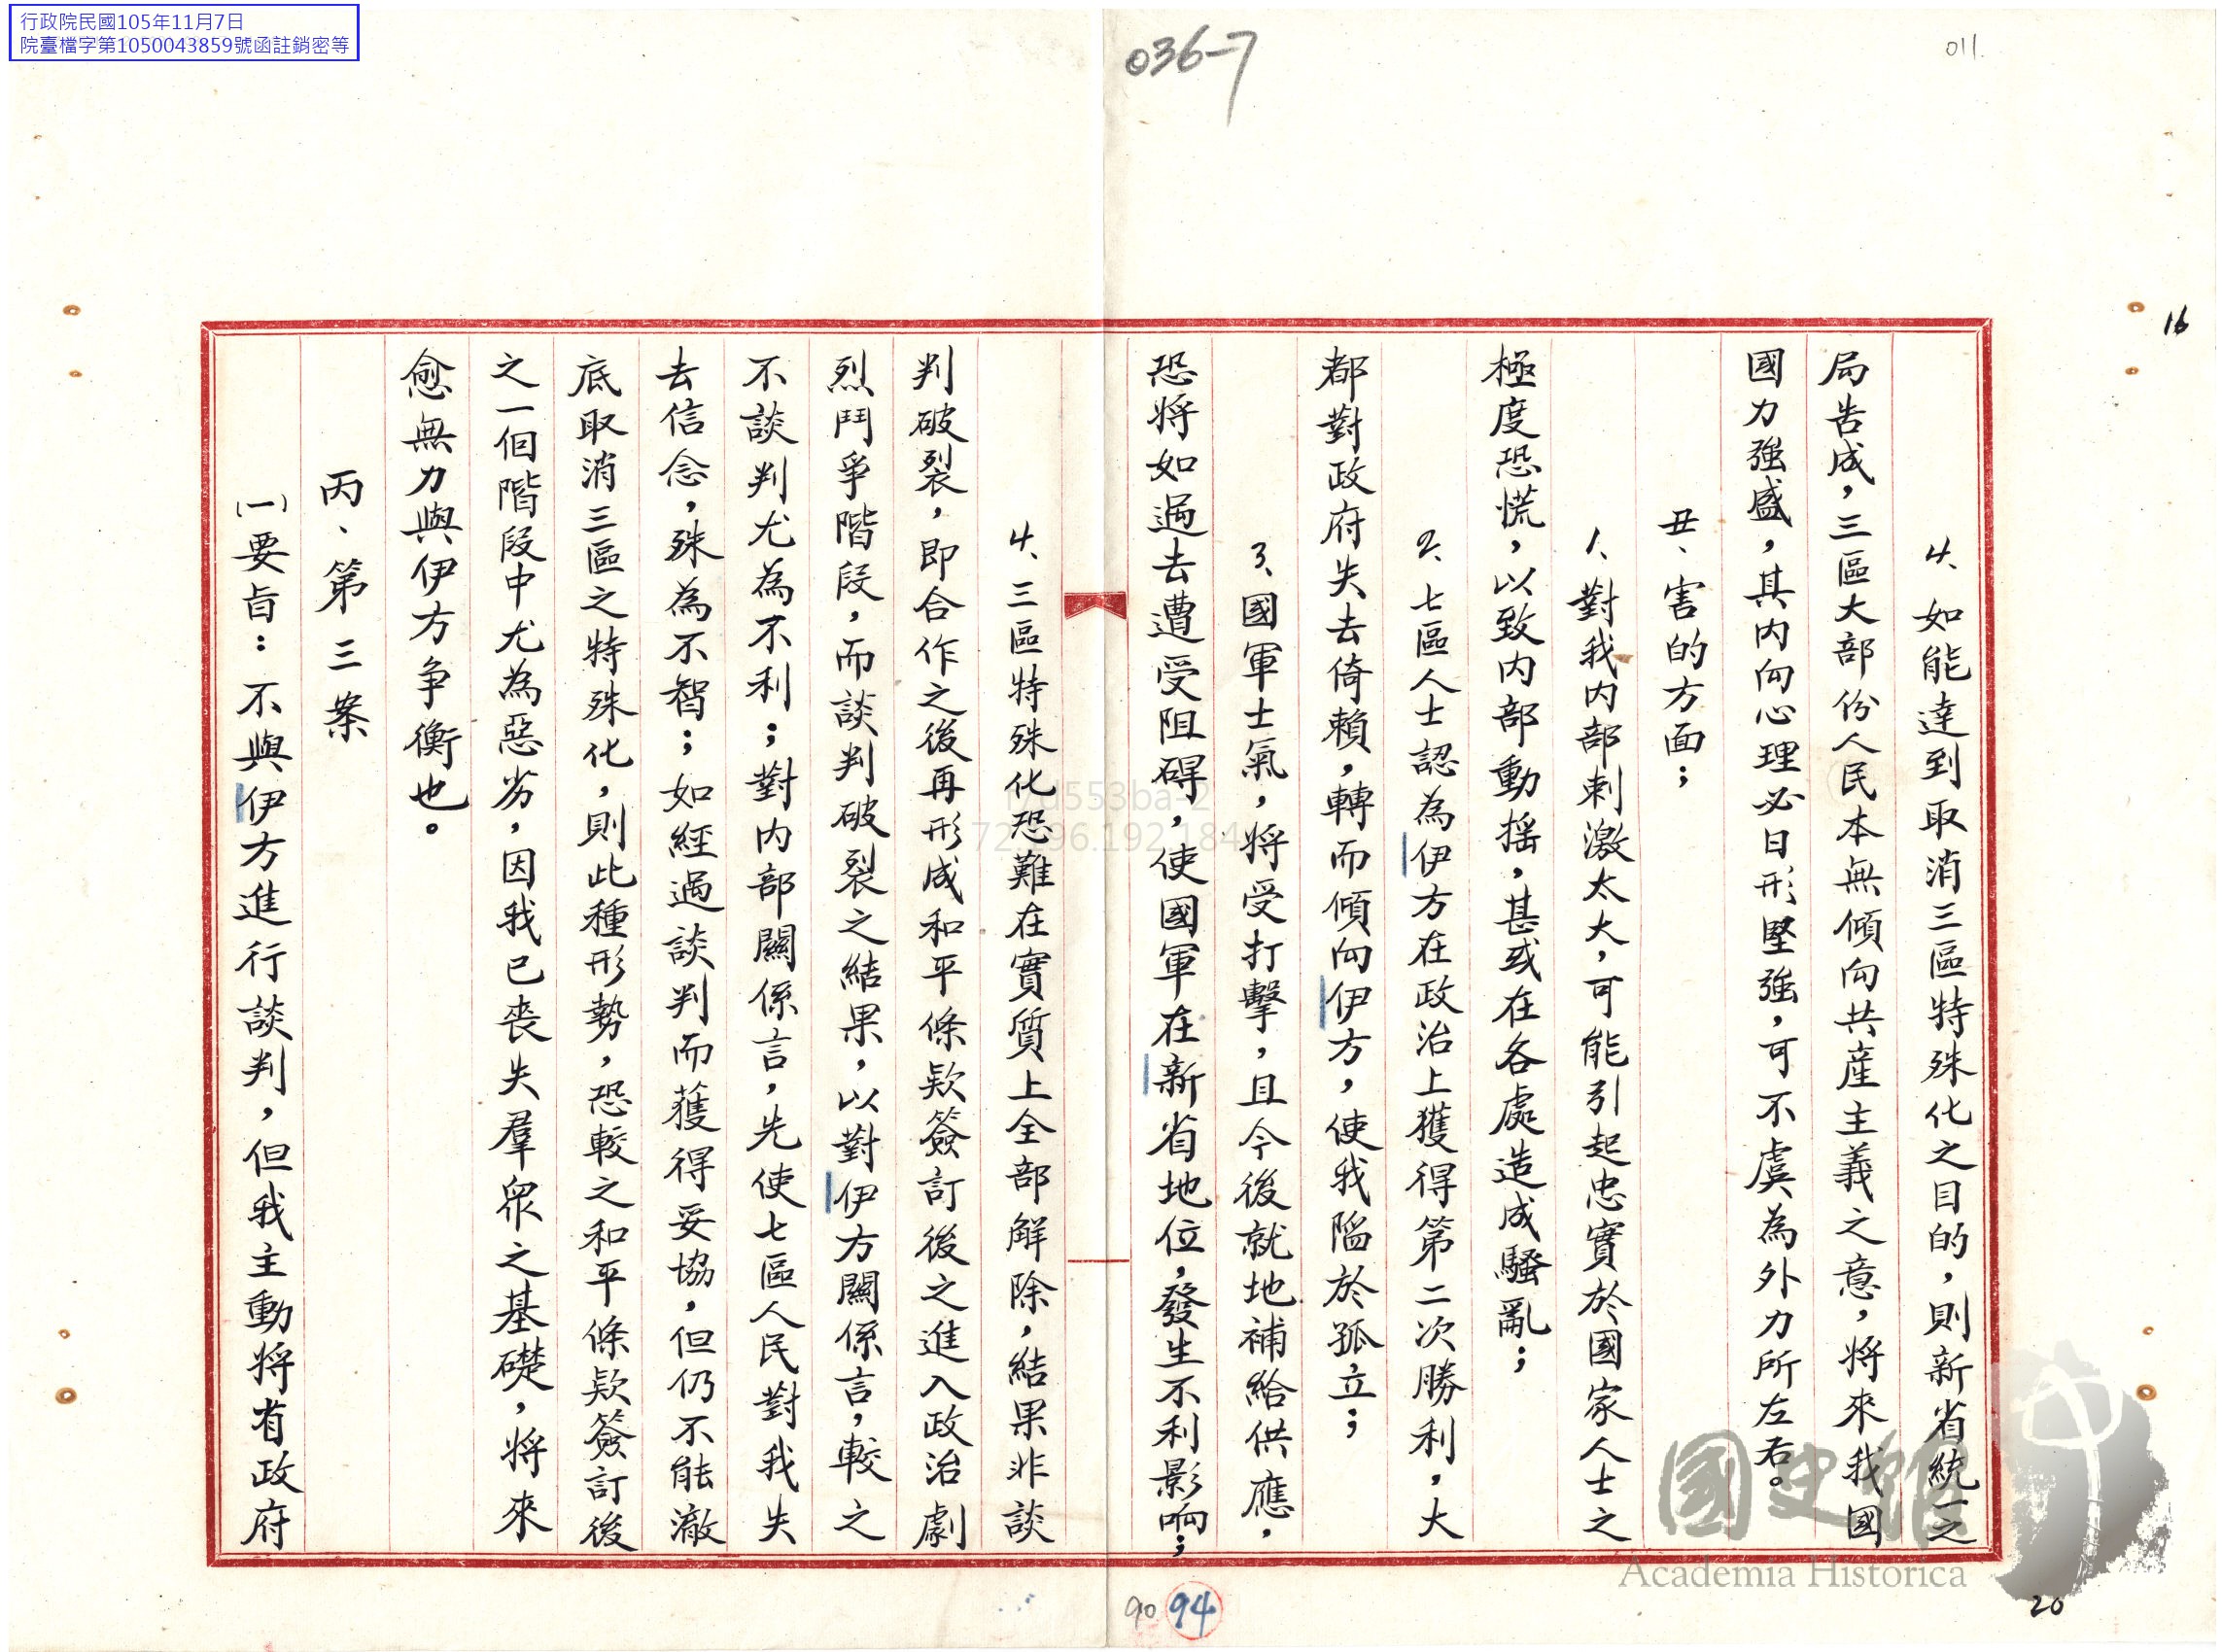 行政院民國105年11月7日
院臺檔字第1050043859號函註銷密等
036-7
011.
16
4、如能達到取消三區特殊化之目的，則新省統一之
局告成，三區大部份人民本無傾向共産主義之意，將來我國
國力強盛，其內向心理必日形堅強，可不虞為外力所左右。
丑、害的方面；
1、對我內部刺激太大，可能引起忠實於國家人士之
極度恐慌，以致內部動搖，甚或在各處造成騷亂；
2、七區人士認為伊方在政治上獲得第二次勝利，大
都對政府失去倚賴，轉而傾向伊方，使我陷於孤立；
3、國軍士氣，將受打擊，且今後就地補給供應，
恐將如過去遭受阻碍，使國軍在新省地位，發生不利影响；
4、三區特殊化恐難在實質上全部解除，結果非談
判破裂，即合作之後再形成和平條款簽訂後之進入政治劇
烈鬥爭階段，而談判破裂之結果，以對伊方關係言，較之
不談判尤為不利；對內部關係言，先使七區人民對我失
去信念，殊為不智；如經過談判而獲得妥協，但仍不能澈
底取消三區之特殊化，則此種形勢，恐較之和平條款簽訂後
之一個階段中尤為惡劣，因我已喪失羣眾之基礎，將來
愈無力與伊方爭衡也。
丙、第三案
㈠要旨：不與伊方進行談判，但我主動將省政府
90
94
20
國史館
Academia Historica
72.196.192.184